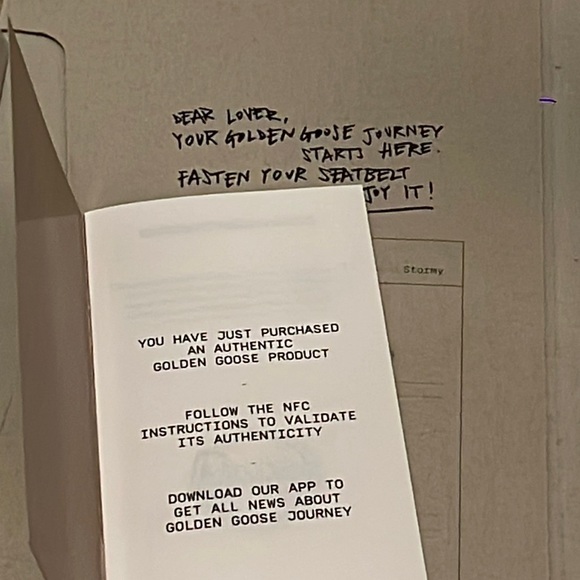 DEAR LOVER,
YOUR GOLDEN GOOSE JOURNEY
STARTS HERE.
FASTEN YOUR SEATBELT
JOY IT!
Stormy
YOU HAVE JUST PURCHASED
AN AUTHENTIC
GOLDEN GOOSE PRODUCT
-
FOLLOW THE NFC
INSTRUCTIONS TO VALIDATE
ITS AUTHENTICITY
-
DOWNLOAD OUR APP TO
GET ALL NEWS ABOUT
GOLDEN GOOSE JOURNEY